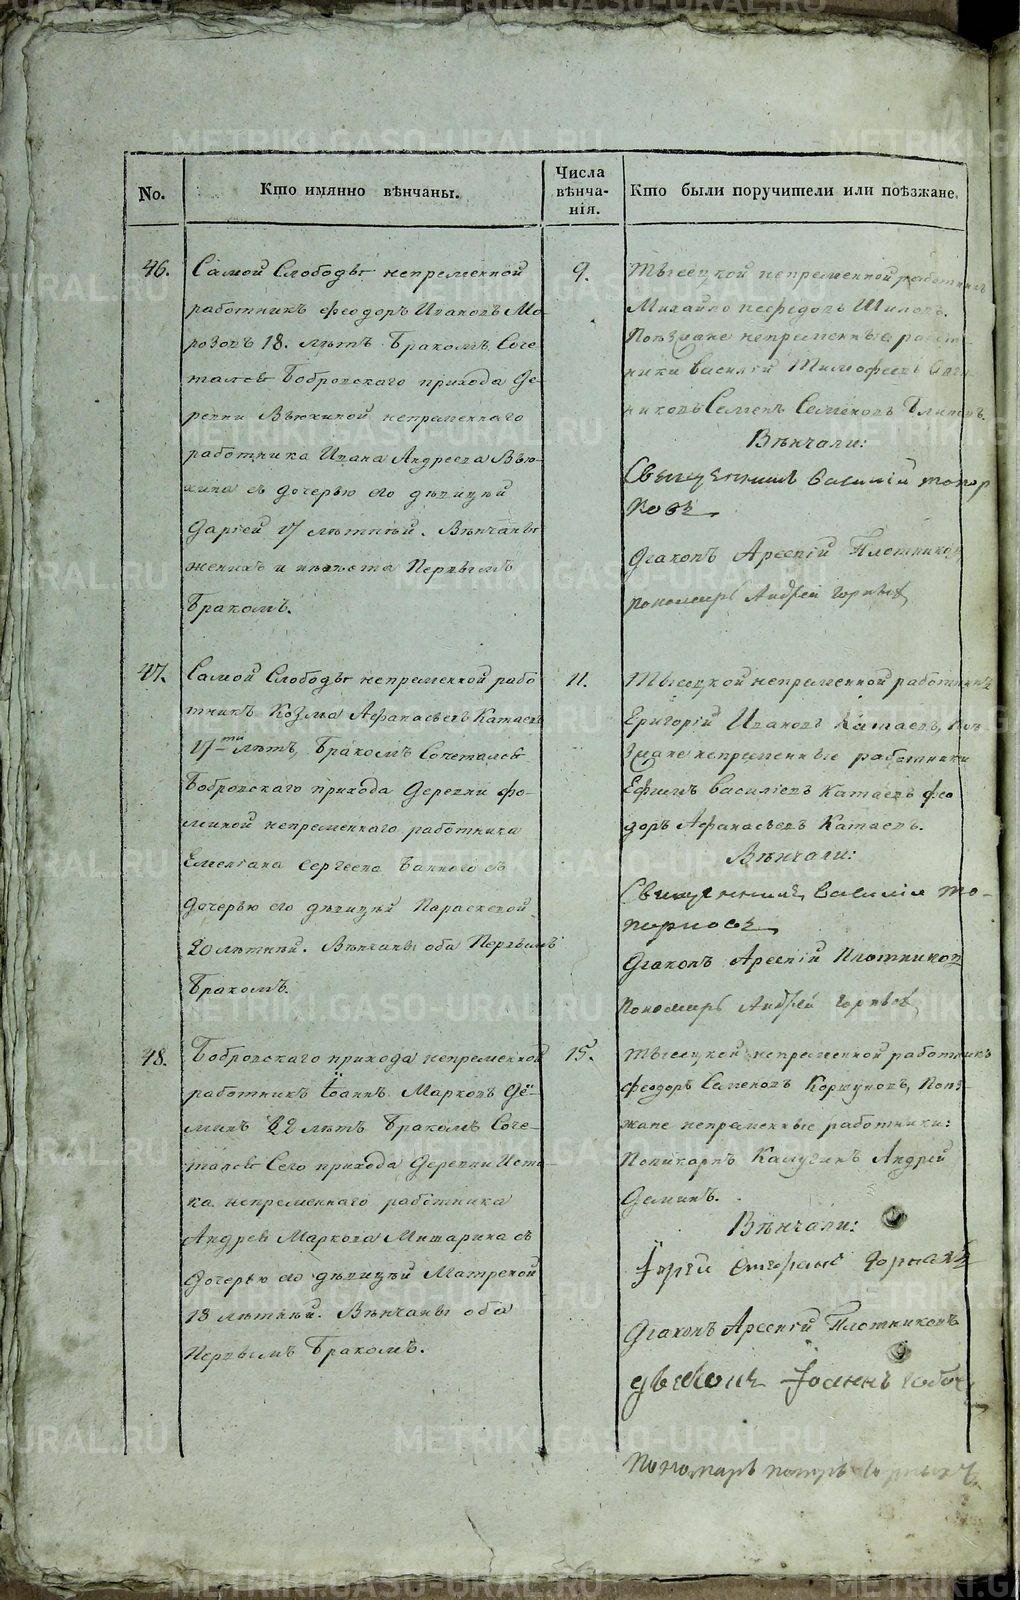 No.
Кто имянно вѣнчаны.
Числа
вѣнча-
нія.
Кто были поручители или поѣзжане.
46.
Самой Слободы непременной
работникъ Феодоръ Ивановъ Мо-
розовъ 18. лѣтъ Бракомъ Соче
тался Бобровскаго прихода Де-
ревни Вьюхиной непременнаго
работника Ивана Андреева Вью-
хина съ дочерью его дѣвицѣй
Дарьей 17 лѣтнѣй. Вѣнчаны
женихъ и невѣста Первымъ
Бракомъ.
9.
Тысецкой непременной работникъ
Михайло Шиловъ.
Поѣзжане непременныя работ-
ники Василій Тимофеевъ
Семенъ Семеновъ
Вѣнчали:
Священникъ Василій Топор
ковъ
Діаконъ Арсеній Плотников
Пономарь Андрей Горныхъ
47.
Самой Слободы непременной рабо
тникъ Козма Афанасьевъ Катаевъ
17ти лѣтъ, Бракомъ Сочетался
Бобровскаго прихода Деревни Фо-
миной непременнаго работника
Емельяна Сергеева съ
дочерью его дѣвицѣй Параскевой
20 лѣтнѣй. Вѣнчаны оба Первымъ
Бракомъ.
11.
Тысецкой непременной работникъ
Григорій Ивановъ Катаевъ, Поѣ
зжане непременные работники
Ефимъ Василіевъ Катаевъ Фео
доръ Афанасьевъ Катаевъ.
Вѣнчали:
Священникъ Василій То-
порковъ
Діаконъ Арсеній Плотников
Пономарь Андрей Горныхъ
48.
Бобровскаго прихода непременной
работникъ Іоаннъ Марковъ Дё-
минъ 22 лѣтъ Бракомъ Соче-
тался Сего прихода Деревни Исто-
ка непременнаго работника
Андрея Маркова Митарина съ
дочерью его дѣвицѣй Матреной
18 лѣтнѣй. Вѣнчаны оба
Первымъ Бракомъ.
15.
Тысецкой непременной работникъ
Феодоръ Семеновъ Коршуновъ, Поѣз-
жане непременные работники:
Поликарпъ Калугинъ Андрей
Деминъ.
Вѣнчали:
Іерей Стефанъ Горныхъ
Діаконъ Арсеній Плотниковъ
Дьяконъ Іоаннъ
Пономарь Петръ Горныхъ
METRIKI.GASO-URAL.RU